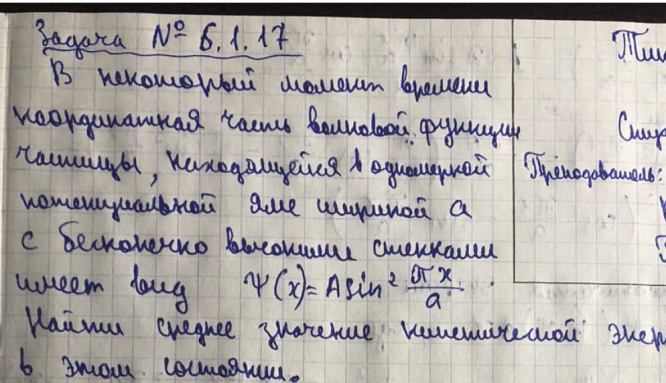 Задача № 6.1.17
В некоторый момент времени
координатная часть волновой функции
частицы, находящейся в одномерной
потенциальной яме шириной a
с бесконечно высокими стенками
имеет вид Ψ(x)=Asin² πx/a.
Найти среднее значение кинетической энер
в этом состоянии.
Преподаватель: